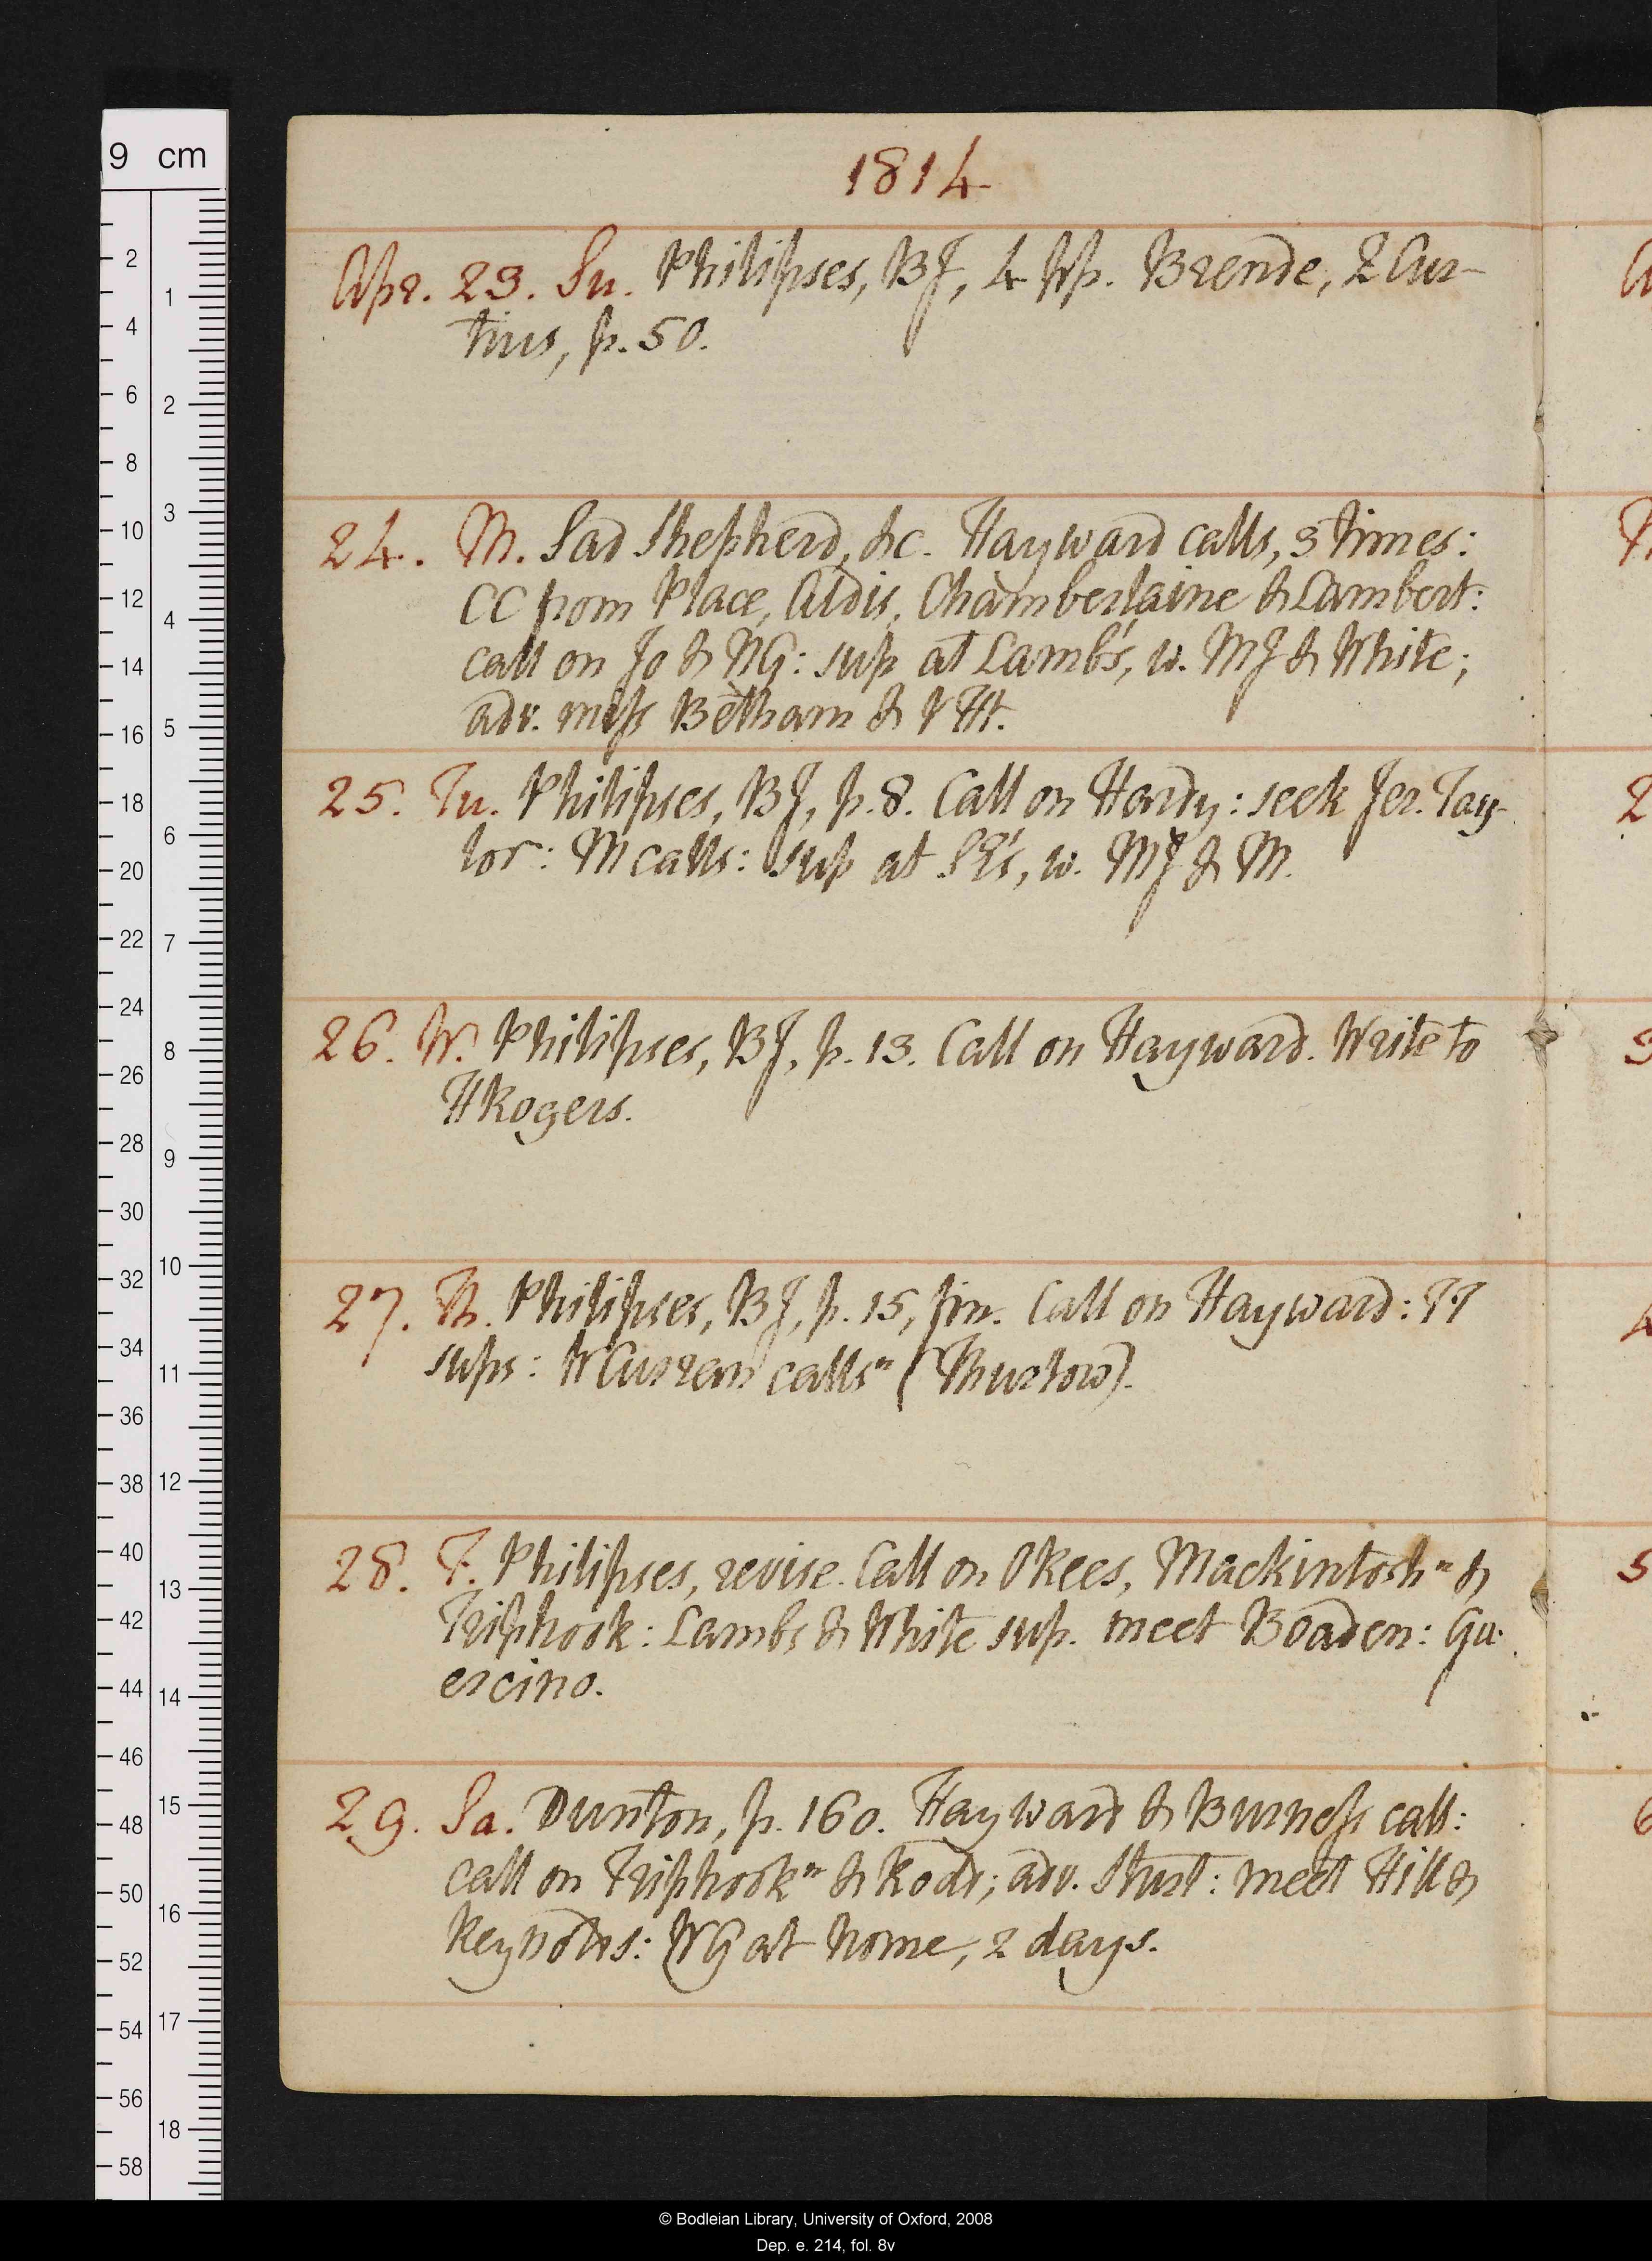 1814
Apr. 23. Su. Philipses, BJ, 4 pp. Brende, Q Cur-
tius, p. 50.
24. M. Sad Shepherd, &c. Hayward calls, 3 times:
CC from Place, Aldis, Chamberlaine & Lambert:
call on Jo & NG: sup at Lamb's, w. MJ & White;
adv. miss Betham & HR.
25. Tu. Philipses, BJ, p. 8. Call on Hardy: seek Jer. Tay-
lor: M calls: sup at w. MJ & M.
26. W. Philipses, BJ, p. 13. Call on Hayward. Write to
H Rogers.
27. Th. Philipses, BJ, p. 15, fin. Call on Hayward: TT
sups: W Curran calls n (Thurlow).
28. F. Philipses, revise. Call on O Rees, Mackintosh n &
Triphook: Lambs & White sup. meet Boaden: Gu-
ercino.
29. Sa. Dunton, p. 160. Hayward & Burness call:
call on Triphook n & Rodd; adv. meet Hill &
Reynolds: WG at home, 2 days.
9 cm
2
4
6
8
10
12
14
16
18
20
22
24
26
28
30
32
34
36
38
40
42
44
46
48
50
52
54
56
58
1
2
3
4
5
6
7
8
9
10
11
12
13
14
15
16
17
18
© Bodleian Library, University of Oxford, 2008
Dep. e. 214, fol. 8v